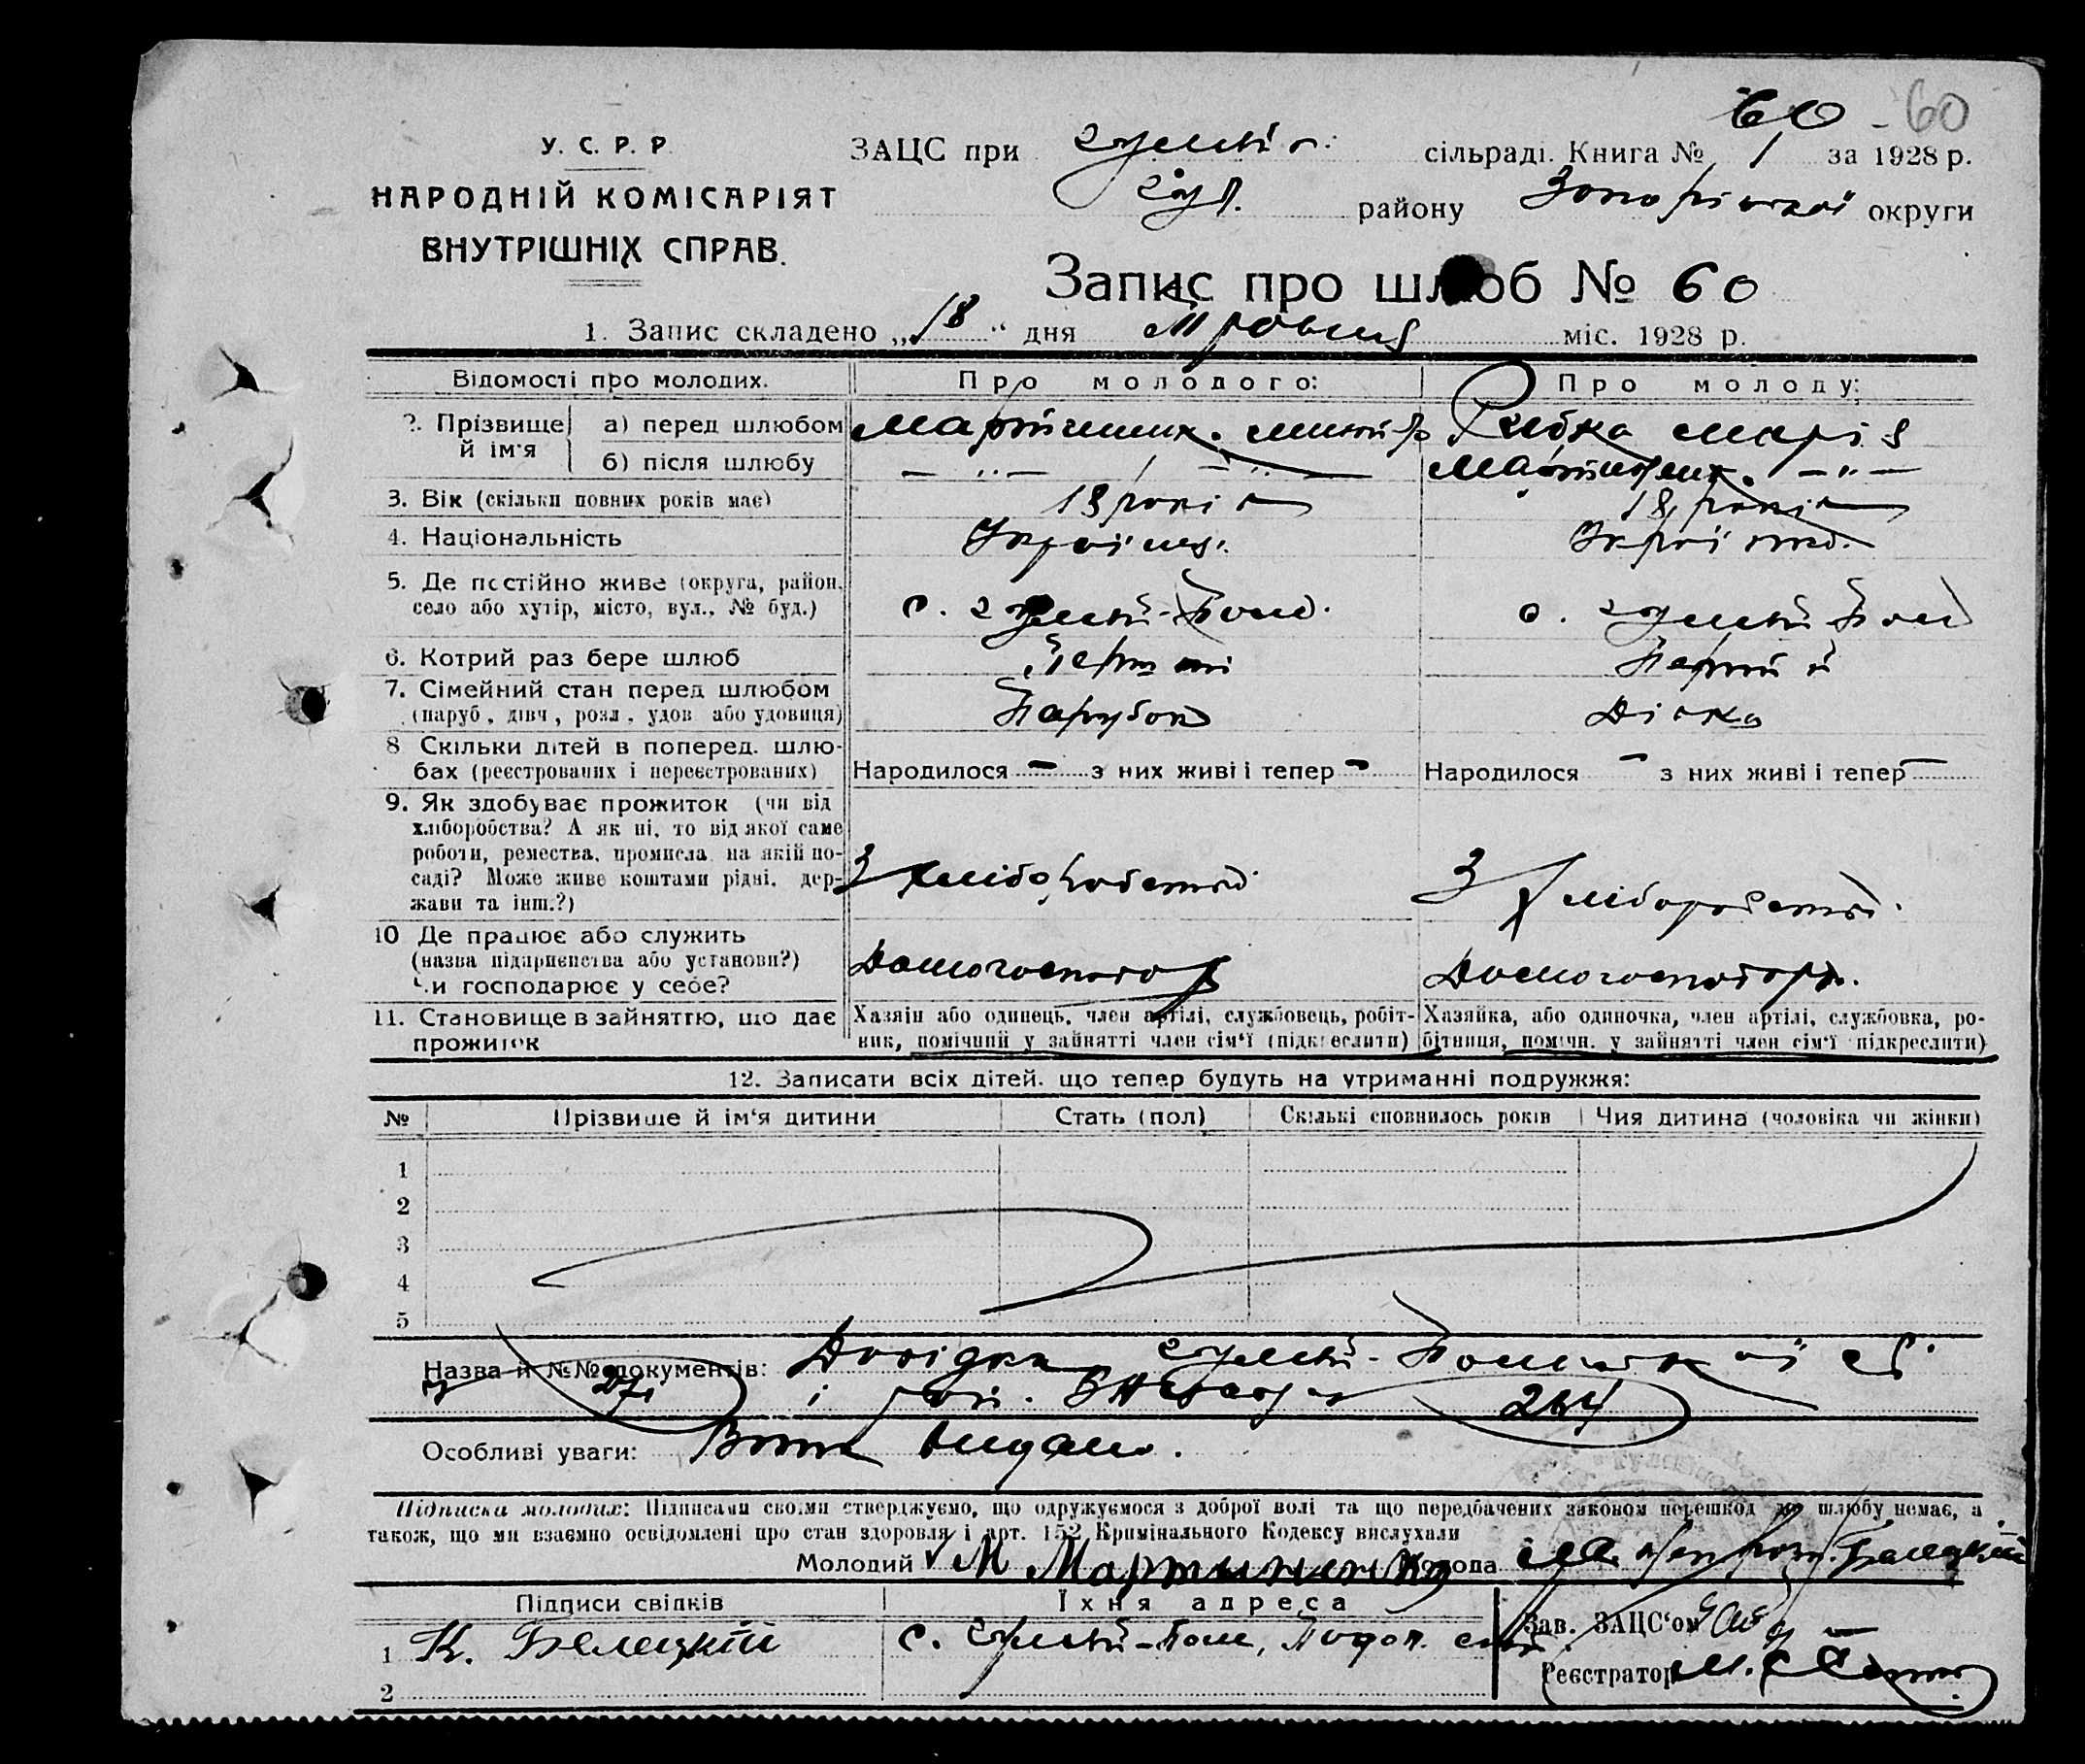 60 - 60
У. С. Р. Р.
НАРОДНІЙ КОМІСАРІЯТ
ВНУТРІШНІХ СПРАВ.
ЗАЦС при сільраді. Книга № 1 за 1928 р.
Гул. району Запорізької округи
Запис про шлюб № 60
1. Запис складено „18“ дня Травня міс. 1928 р.
Відомості про молодих. Про молодого: Про молоду:
2. Прізвище й ім'я а) перед шлюбом Рибка Марія
б) після шлюбу — „ — — „ — — „ —
3. Вік (скільки повних років має) 18 років 18 років
4. Національність Українка
5. Де постійно живе (округа, район, село або хутір, місто, вул., № буд.) с. Гуляй-Поле. с. Гуляй Поле
6. Котрий раз бере шлюб Перший
7. Сімейний стан перед шлюбом (паруб., дівч., розл., удов. або удовиця) Парубок Дівка
8. Скільки дітей в поперед. шлюбах (реєстрованих і нереєстрованих) Народилося — з них живі і тепер — Народилося — з них живі і тепер —
9. Як здобуває прожиток (чи від хліборобства? А як ні, то від якої саме роботи, ремества, промисла, на якій посаді? Може живе коштами рідні, держави та інш.?) З хліборобства З хліборобства
10 Де працює або служить (назва підприємства або установи?) Чи господарює у себе? Домогосподар Домогосподарк.
11. Становище в зайняттю, що дає прожиток Хазяїн або одинець, член артілі, службовець, робітник, помічний у зайнятті член сім'ї (підкреслити) Хазяйка, або одиночка, член артілі, службовка, робітниця, помічн. у зайнятті член сім'ї (підкреслити)
12. Записати всіх дітей, що тепер будуть на утриманні подружжя:
№ Прізвище й ім'я дитини Стать (пол) Скількі сповнилось років Чия дитина (чоловіка чи жінки)
1
2
3
4
5
Назва й №№ документів: Довідка Гуляй-Польської
і 264
Особливі уваги: видано.
Підписка молодих: Підписами своїми стверджуємо, що одружуємося з доброї волі та що передбачених законом перешкод до шлюбу немає, а
також, що ми взаємно освідомлені про стан здоровля і арт. 152 Кримінального Кодексу вислухали
Молодий М Мартиненко Молода
Підписи свідків Їхня адреса Зав. ЗАЦС'ом
1 К. Белецкій с. Гуляй-Поле,
Реєстратор
2